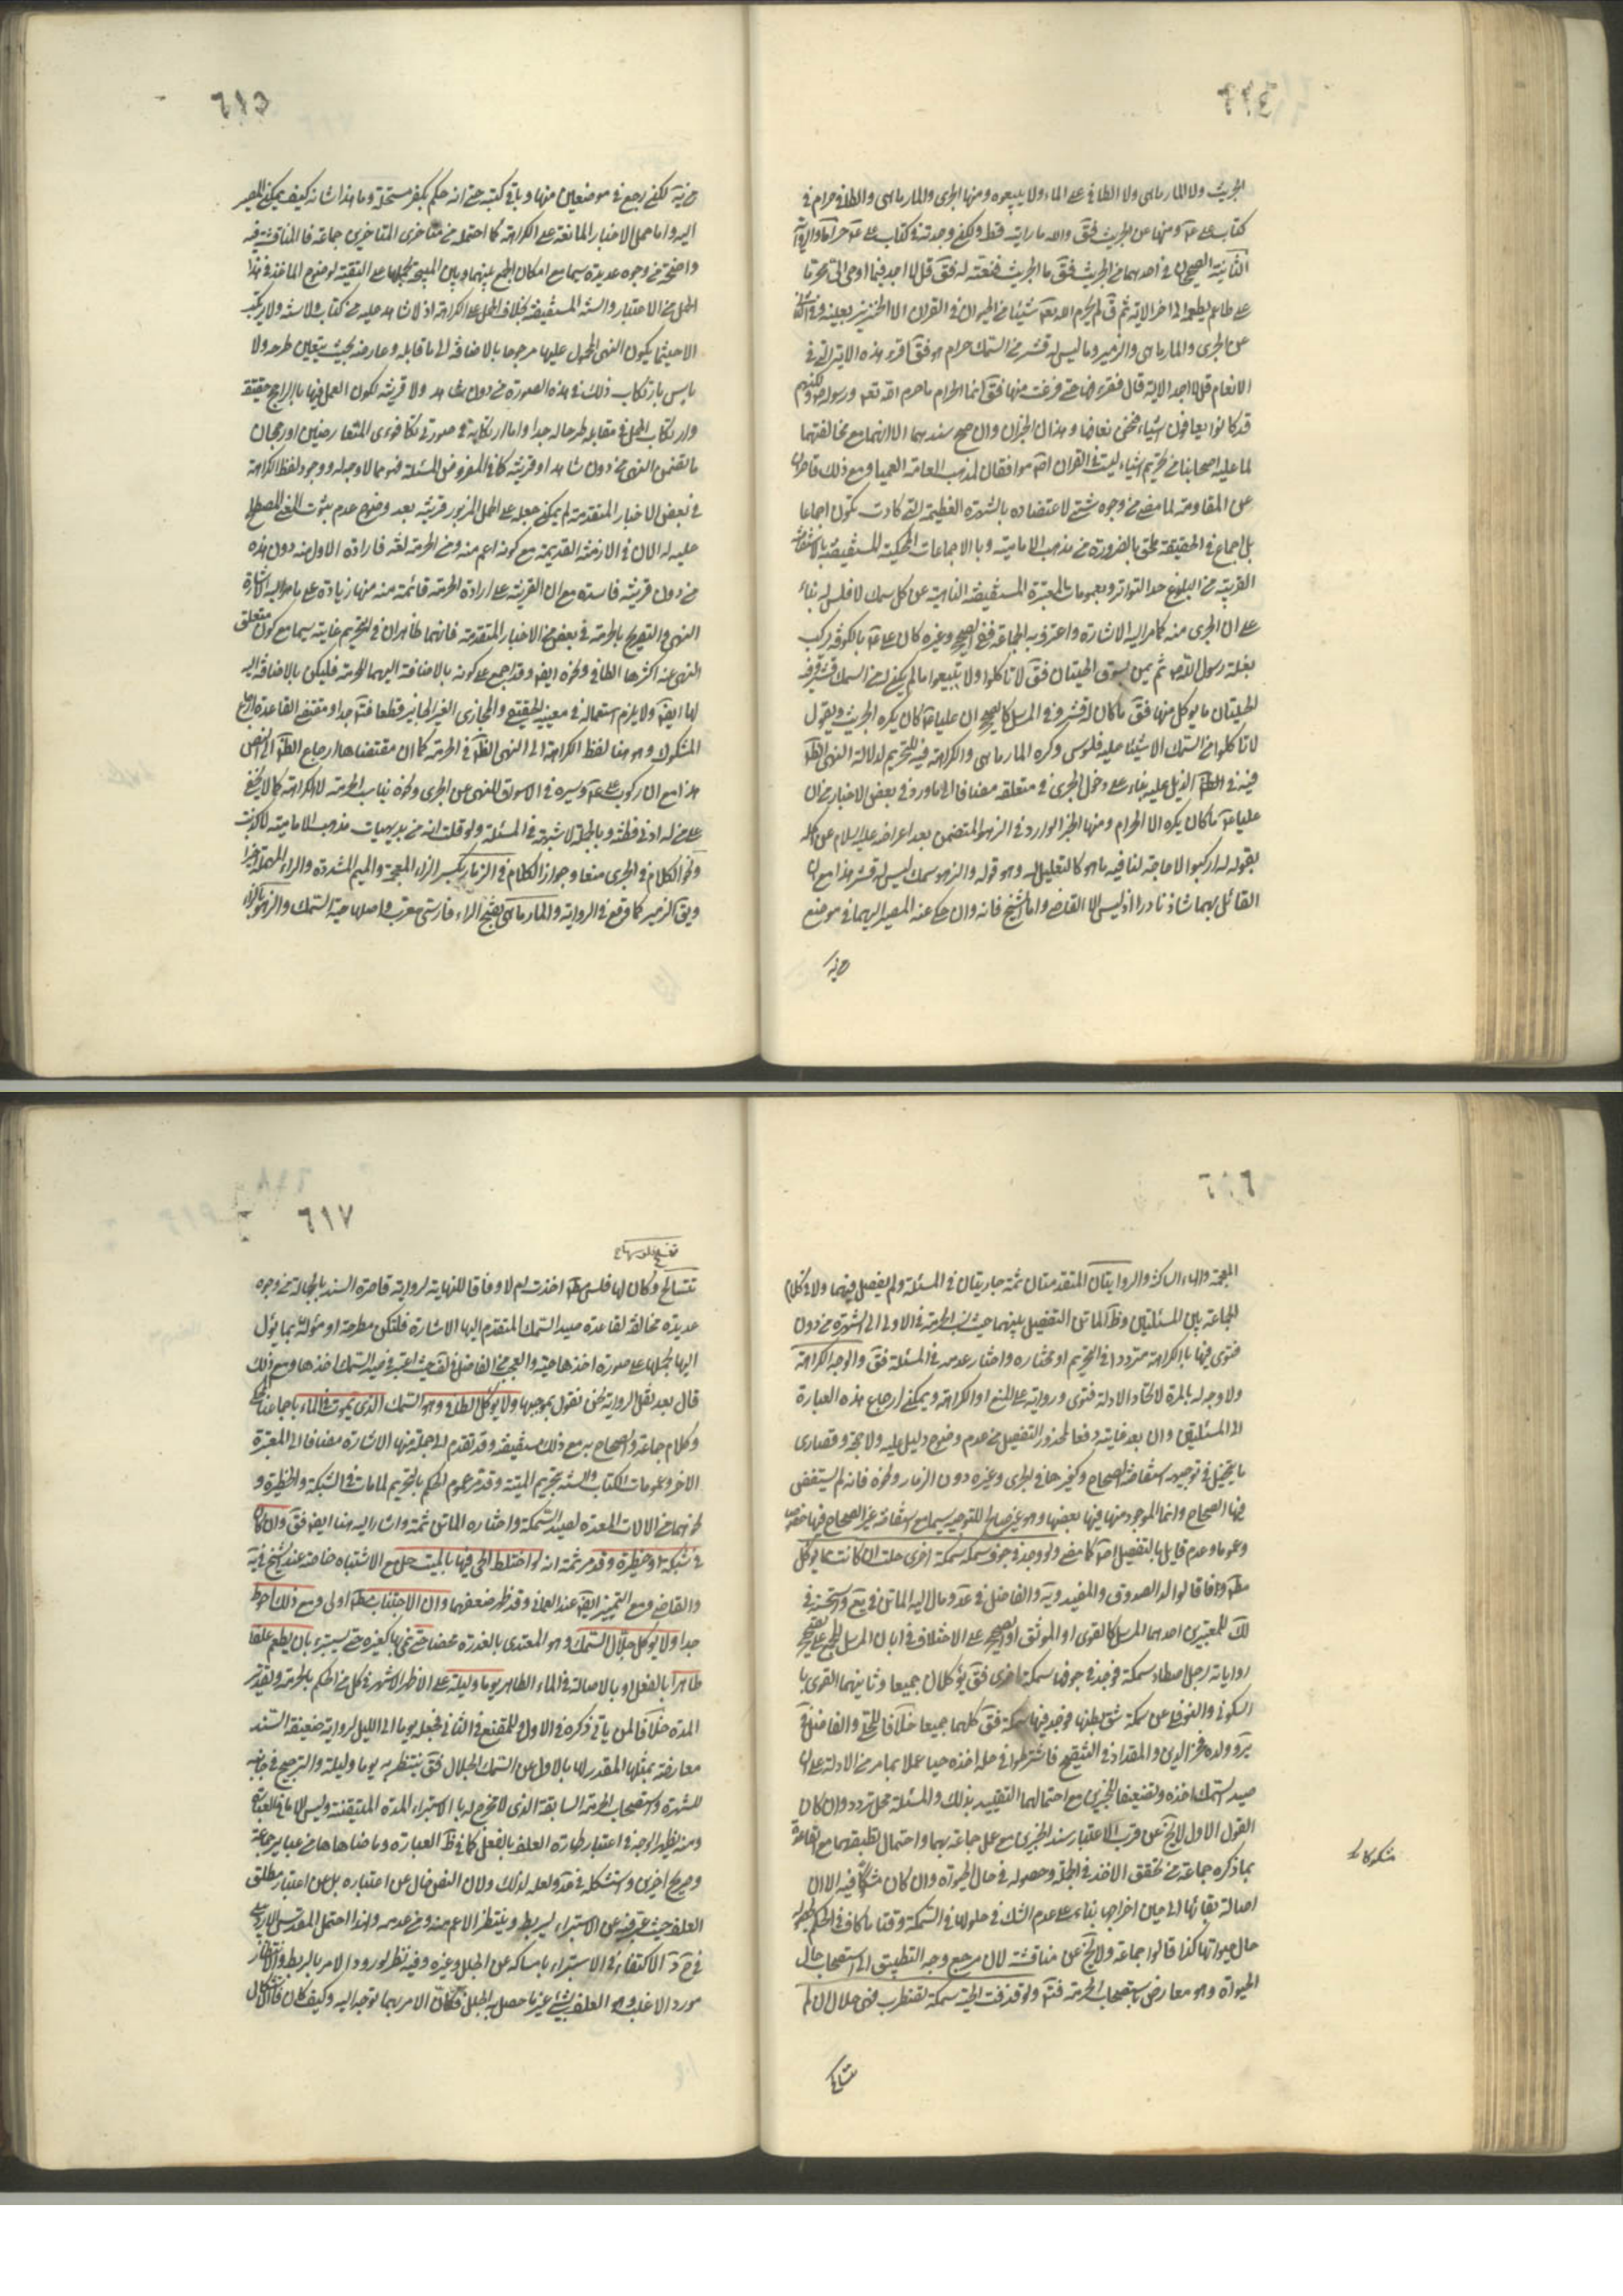 ٦١٤
الجريث ولا المارماهى ولا الطافى على الماء ولا يبيعوه ومنها الجرى والمارماهى والطافى حرام فى
كتاب على ومنها عن الجريث فق والله ما رايته قط ولكن وجدته فى كتاب على حراما
الثانية الصحيحان فى احدهما عن الجريث فق ما الجريث فنعته له فق قل لا اجد فيما اوحى الى محرما
على طاعم يطعمه الى اخر الاية ثم ق لم يحرم الله تعه شيئا من الحيوان فى القران الا الخنزير بعينه وفى
عن الجرى والمارماهى والزمير وما ليس له قشر من السمك حرام هو فق اقرء هذه الاية التى فى
الانعام قل لا اجد الاية قال فقرءتها حتى فرغت منها فق انما الحرام ما حرم الله تعه ورسوله ولكنهم
قد كانوا يعافون اشياء فنحن نعافها وهذان الخبران وان صح سندهما الا انهما مع مخالفتهما
لما عليه اصحابنا من تحريم اشياء ليست فى القران موافقان لمذهب العامة العمياء ومع ذلك قاصران
عن المقاومة لما مضى من وجوه شتى لاعتضاده بالشهرة العظيمة التى كادت تكون اجماعا
بل اجماع فى الحقيقة ملحق بالضرورة من مذهب الامامية وبالاجماعات المحكية المستفيضة
القريبة من البلوغ حد التواتر وبعمومات المعتبرة المستفيضة الناهية عن كل سمك لا فلس له بناء
على ان الجرى منه كما مر اليه الاشارة واعترف به الجماعة ففى الصحيح وغيره كان على بالكوفة يركب
بغلة رسول الله ثم يمر بسوق الحيتان فق لا تاكلوا ولا تبيعوا ما لم يكن له من السمك قشر وفى
الحيتان ما يوكل منها فق ما كان له قشر وفى المرسل كالصحيح ان عليا كان يكره الجريث ويقول
لا تاكلوا من السمك الا شيئا عليه فلوس وكره المارماهى والكراهة فيه للتحريم لدلالة النهى
فيه وفى الذيل عليه بناء على دخول الجرى فى متعلقه مضافا الى ما ورد فى بعض الاخبار من ان
عليا ما كان يكره الا الحرام ومنها الخبر الوارد فى الزهو المتضمن بعد اعراضه عليه السلام عن اكله
بقوله لداركبوا لا حاجة لنا فيه ما هو كالتعليل له وهو قوله والزهو سمك ليس له قشر هذا مع ان
القائل بهما شاذ نادر اذ ليس الا القاضى واما الشيخ فانه وان حكى عنه المصير اليهما فى موضع
من ية
٦١٥
من ية لكن رجع فى موضعين منها وباقى كتبه حتى انه حكم بكفر مستحله وما هذا شانه كيف يمكن المصير
اليه واما حمل الاخبار المانعة على الكراهة كما احتمله من متاخرى المتاخرين جماعة فالمناقشة فيه
واضحة من وجوه عديدة سيما مع امكان الجمع بينهما وبين المبيحة بحملها على التقية لوضوح الماخذ فى هذا
الحمل من الاعتبار والسنة المستفيضة بخلاف الحمل على الكراهة اذ لا شاهد عليه من كتاب ولا سنة ولا يرتكب
الا حيثما يكون النهى المحمول عليها مرجوحا بالاضافة الى ما قابله وعارضه بحيث يتعين طرحه ولا
باس بارتكاب ذلك فى هذه الصورة من دون شاهد ولا قرينة لكون العمل فيها بالراجح حقيقة
وارتكاب الحمل فى مقابله طرحا له جدا واما ارتكابه فى صورتى تكافوء المتعارضين او رجحان
ما تضمن النهى من دون شاهد او قرينة كما فى المفروض المسئلة فهو مما لا وجه له ووجود لفظ الكراهة
فى بعض الاخبار المتقدمة لم يمكن جعله على الحمل المزبور قرينة بعد وضوح عدم ثبوت المعنى المصطلح
عليه له الان فى الازمنة القديمة مع كونه اعم منه ومن الحرمة لغة فارادة الاول منه دون هذه
من دون قرينة فاسدة مع ان القرينة على ارادة الحرمة قائمة منه منها زيادة على ما مر اليه الاشارة
النهى والتصريح بالحرمة فى بعض من الاخبار المتقدمة فانهما ظاهران فى التحريم غايته سيما مع كون متعلق
النهى عنه اكثرها الطافى ونحوه ايضا وقد اجمع على كونه بالاضافة اليهما الحرمة فليكن بالاضافة اليه
لها ايضا ولا يلزم استعماله فى معنييه الحقيقى والمجازى الغير الجايز قطعا فتد جدا ومقتضى القاعدة ارجاع
المشكوك وهو هنا لفظ الكراهة الى النهى الظ فى الحرمة كما ان مقتضاها ارجاع الظ الى النص
هذا مع ان ركوب على وسيره فى الاسواق للنهى عن الجرى ونحوه يناسب الحرمة لا الكراهة كما لا يخفى
على من له ادنى فطنة وبالجملة لا شبهة فى المسئلة ولو قلت انه من بديهيات مذهب الامامية لما كذبت
ونحو الكلام فى الجرى منعا وجوازا الكلام فى الزمار بكسر الزاء المعجمة والميم المشددة والراء المهملة اخيرا
ويق الزمير كما وقع فى الرواية والمارماهى بفتح الراء فارسى معرب واصلها حية السمك والزهو بالزاء
٦١٦
المعجمة والهاء الساكنة والروايتان المتقدمتان ثمة جاريتان فى المسئلة ولم يفصل فيهما ولا فى كلام
الجماعة بين المسئلتين وظ الماتن التفصيل بينهما حيث نسب الحرمة فى الاولى الى الشهرة من دون
فتوى فيها بالكراهة مترددا فى التحريم او مختاره واختار عدمه فى المسئلة فق والوجه الكراهة
ولا وجه له بالمرة لاتحاد الادلة فتوى ورواية على المنع او الكراهة ويمكن ارجاع هذه العبارة
الى المسئلتين وان بعد غايته دفعا لمحذور التفصيل من عدم وضوح دليل عليه ولا حجة وقصارى
ما يتخيل فى توجيهه استفاضة الصحاح وغيرها فى الجرى وغيره دون الزمار ونحوه فانه لم يستفض
فيها الصحاح وانما الموجود منها فيها بعضها وهو غير صالح للتوجيه سيما مع استفاضة غير الصحاح فيها خصوصا
وعموما وعدم قايل بالتفصيل كما مضى ولو وجد فى جوف سمكة سمكة اخرى حلت ان كانت مما يوكل
مط وفاقا لوالد الصدوق والمفيد وية والفاضل فى عد ومال اليه الماتن فى يع واستحسنه فى
لك للمعتبرين احدهما المرسل كالقوى او الموثق او الصحيح على الاختلاف فى ابان المرسل
رواياته رجل اصطاد سمكة فوجد فى جوفها سمكة اخرى فق يؤكلان جميعا وثانيهما القوى با
السكونى والنوفلى عن سمكة شق بطنها فوجد فيها سمكة فق كلهما جميعا خلافا للحلى والفاضل فى
ير وولده فخر الدين والمقداد فى التنقيح فاشترطوا فى حله اخذه حيا عملا بما مر من الادلة على ان
صيد السمك اخذه وتضعيفا للخبرين مع احتمالهما التقييد بذلك والمسئلة محل تردد وان كان
القول الاول لا يخ عن قرب لاعتبار سند الخبرين مع عمل جماعة بهما واحتمال تطبيقهما مع القاعدة
بما ذكره جماعة من تحقق الاخذ فى الجملة وحصوله فى حال الحيوة وان كان مشكوكا فيه الا ان
اصالة بقائها الى حين اخراجها بناء على عدم الشك فى حلولها فى السمكة وقتا ما كاف فى الحكم
حال حيواتها كذا قالوا جماعة ولا يخ عن مناقشة لان مرجع وجه التطبيق الى استصحاب حال
الحيوة وهو معارض باستصحاب الحرمة فتد ولو قذفت الحية سمكة تضطرب فهى حلال ان لم
مشكوكا
تنسلخ
٦١٧
تنسلخ فلوسها
تنسلخ وكان لها فلس مط اخذت ام لا وفاقا للنهاية لرواية قاصرة السند بالجهالة من وجوه
عديدة مخالفة لقاعدة صيد السمك المتقدم اليها الاشارة فلتكن مطرحة او مؤولة بما يؤل
اليها بحملها على صورة اخذها حية والعجب من الفاضل فى لف حيث اعتبر فى صيد السمك اخذها ومع ذلك
قال بعد نقل الرواية نحن نقول بموجبها ولا يؤكل الطافى وهو السمك الذى يموت فى الماء باجماعنا
وكلام جماعة والصحاح به مع ذلك مستفيضة وقد تقدم الى جملة منها الاشارة مضافا الى المعتبرة
الاخر وعمومات الكتاب والسنة بتحريم الميتة وقد مر عموم الحكم بالتحريم لما مات فى الشبكة والحظيرة و
نحوهما من الالات المعدة لصيد السمكة واختاره الماتن ثمة واشار اليه هنا ايضا فق وان كان
فى شبكة او حظيرة وقد مر ثمة انه لو اختلط الحى فيها بالميت حل مع الاشتباه خاصة عند الشيخ فى ية
والقاضى ومع التمييز ايضا عند العمانى وقد ظهر ضعفهما وان الاجتناب مط اولى ومع ذلك احوط
جدا ولا يوكل جلال السمك وهو المغتذى بالعذرة محضا حتى نمى بها كغيره حتى يستبرء بان يطعم علفا
طاهرا بالفعل او بالاصالة فى الماء الطاهر يوما وليلة على الاظهر الاشهر فى كل من الحكم بالحرمة وتقدير
المدة خلافا لمن ياتى ذكره فى الاول وللمقنع فى الثانى فجعله يوما الى الليل لرواية ضعيفة السند
معارضة بمثلها المقدر لها بالاول عن السمك الجلال فق ينتظر به يوما وليلة والترجيح فى جانبه
للشهرة واستصحاب الحرمة السابقة الذى لا مخرج له الا استبراء المدة المتيقنة وليس الا ما فى العبارة
ومنه يظهر الوجه فى اعتبار طهارة العلف بالفعل كما فى ظ العبارة وما ضاهاها من عباير جماعة
وصريح اخرى واستشكله فى عد ولعله لذلك ولان النص خال عن اعتباره بل عن اعتبار مطلق
العلف حيث عبر فيه عن الاستبراء ليربط وينتظر الاعم منه ومن عدمه ولهذا احتمل المقدس الاردبيلى
الاكتفاء فى الاستبراء بامساكه عن الجلل وغيره وفيه نظر لورود الامر بالربط والانتظار
مورد الاغلب وهو العلف بشئ غير ما حصل به الجلل فكان الامر بهما توجه اليه وكيف كان